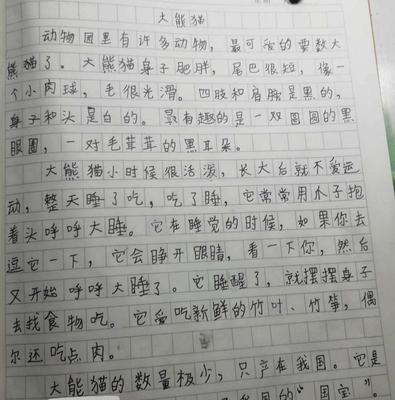 大熊猫
动物园里有许多动物，最可爱的要数大
熊猫了。大熊猫身子肥胖，尾巴很短，像一
个小肉球，毛很光滑。四肢和肩膀是黑的，
身子和头是白的。最有趣的是一双圆圆的黑
眼圈，一对毛茸茸的黑耳朵。
大熊猫小时候很活泼，长大后就不爱运
动，整天睡了吃，吃了睡，它常常用爪子抱
着头呼呼大睡。它在睡觉的时候，如果你去
逗它一下，它会睁开眼睛，看一下你，然后
又开始呼呼大睡了。它睡醒了，就摆摆身子
去找食物吃。它爱吃新鲜的竹叶、竹笋，偶
尔还吃点肉。
大熊猫的数量极少，只产在我国。它是
我国的“国宝”。